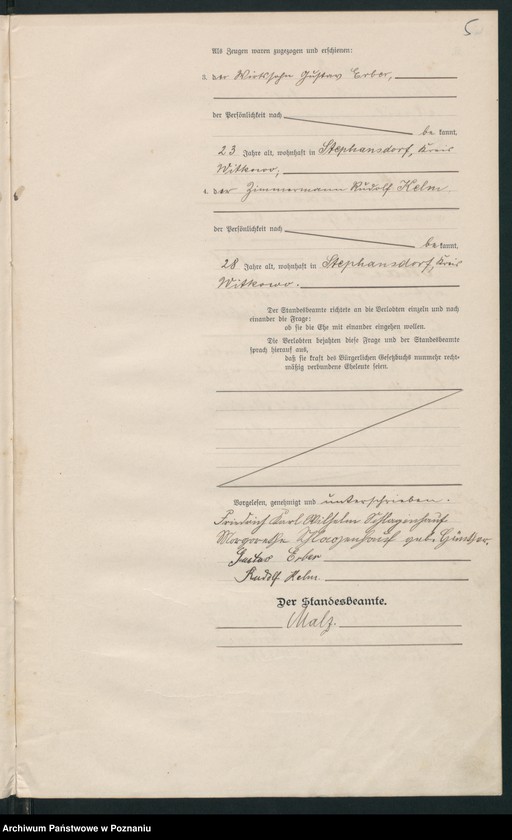 5
Als Zeugen waren zugezogen und erschienen:
3. der Wirtssohn Gustav Erber,
der Persönlichkeit nach
be kannt,
23 Jahre alt, wohnhaft in Stephansdorf, Kreis
Witkowo;
4. der Zimmermann Rudolf Helm
der Persönlichkeit nach
be kannt,
28 Jahre alt, wohnhaft in Stephansdorf, Kreis
Witkowo.
Der Standesbeamte richtete an die Verlobten einzeln und nach
einander die Frage:
ob sie die Ehe mit einander eingehen wollen.
Die Verlobten bejahten diese Frage und der Standesbeamte
sprach hierauf aus,
daß sie kraft des Bürgerlichen Gesetzbuchs nunmehr recht-
mäßig verbundene Eheleute seien.
Vorgelesen, genehmigt und unterschrieben.
Friedrich Karl Wilhelm Schlagenhauf
Margarethe Schlagenhauf geb. Günther.
Gustav Erber
Rudolf Helm.
Der Standesbeamte.
Malz.
Archiwum Państwowe w Poznaniu